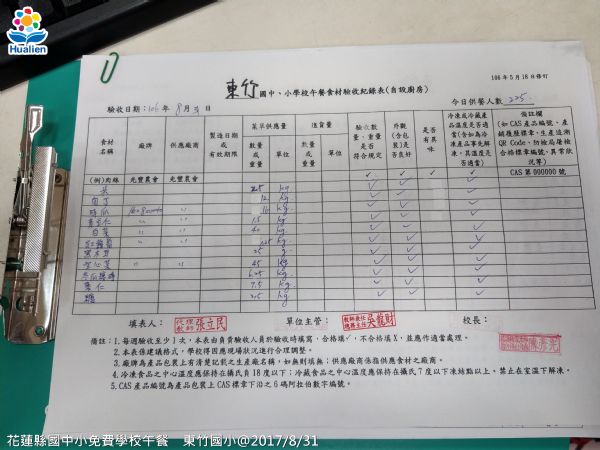 Hualien
106年5月18日修訂
東竹國中、小學校午餐食材驗收紀錄表(自設廚房)
驗收日期：106年8月31日
今日供餐人數 225
食材名稱 廠牌 供應廠商 製造日期或有效期限 菜單供應量 進貨量 驗收數量、重量是否符合規定 外觀(含包裝)是否良好 是否有異味 冷凍或冷藏產品溫度是否適當(如為冷凍產品事先解凍，其溫度是否適當) 備註欄(如CAS產品編號、產銷履歷標章、生產追溯QR Code、防檢局屠檢合格標章編號、異常狀況等)
數量或重量 單位 數量或重量 單位
(例)肉絲 光豐農會 光豐農會 ✓ ✓ ✓ ✓ CAS 第000000號
米 25 kg
肉丁 12 kg
kg
1.5 kg
白菜 40 kg
kg
g
空心菜 45 kg
6.25 kg
薏仁 7.5 kg
糖 2.5 kg
填表人： 張立民
單位主管： 吳龍財
校長：
備註：1.每週驗收至少1次，本表由負責驗收人員於驗收時填寫，合格填✓，不合格填X，並應作適當處理。
2.本表係建議格式，學校得因應現場狀況進行合理調整。
3.廠牌為產品包裝上有清楚記載之生產廠名稱，如無則填無；供應廠商係指供應食材之廠商。
4.冷凍食品之中心溫度應保持在攝氏負18度以下；冷藏食品之中心溫度應保持在攝氏7度以下凍結點以上，禁止在室溫下解凍。
5.CAS產品編號為產品包裝上CAS標章下沿之6碼阿拉伯數字編號。
花蓮縣國中小免費學校午餐 東竹國小@2017/8/31